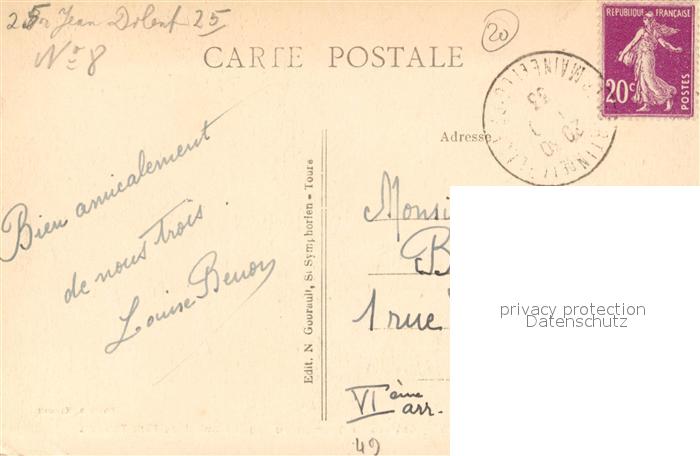 25 r Jean Dolent 25
Nº 8
20
CARTE POSTALE
REPUBLIQUE FRANÇAISE
20c
POSTES
MAINE ET
33
Adresse
Bien amicalement
de nous trois.
Louise Benon
Edit. N Gourault, St Symphorien - Tours
Monsi
B
1 rue
VIème arr.
49
privacy protection
Datenschutz